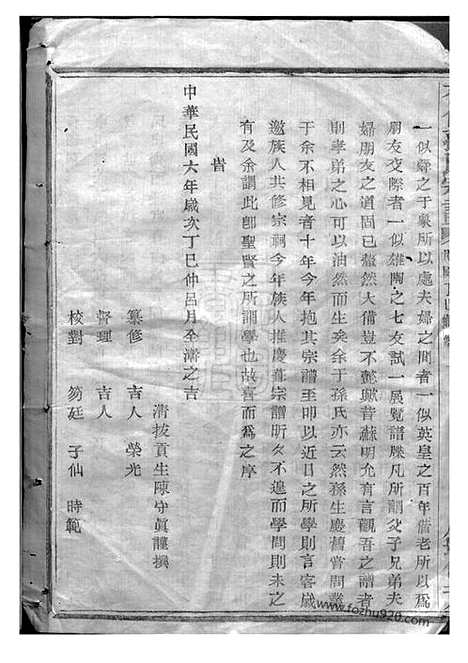 一似舜之于象所以處夫婦之間者一似英皇之百年偕老所以為
朋友交際者一似雄陶之七友試一展覽譜牒凡所謂父子兄弟夫
婦朋友之道固已盡然大備豈不懿歟昔蘇明允有言觀吾之譜者
則孝弟之心可以油然而生矣余于孫氏亦云然孫生慶舊嘗問業
于余不相見者十年今年抱其宗譜至叩以近日之所學則言客歲
邀族人共修宗祠今年族人推慶葺宗譜昕夕不遑而學問則未之
有及余謂此即聖賢之所謂學也故喜而為之序
旹
中華民國六年歲次丁巳仲呂月全濟之吉
清拔貢生陳守真謹撰
纂修 吉人 榮光
督理 吉人
校對 笏廷 子仙 時範
www.fozhu920.com